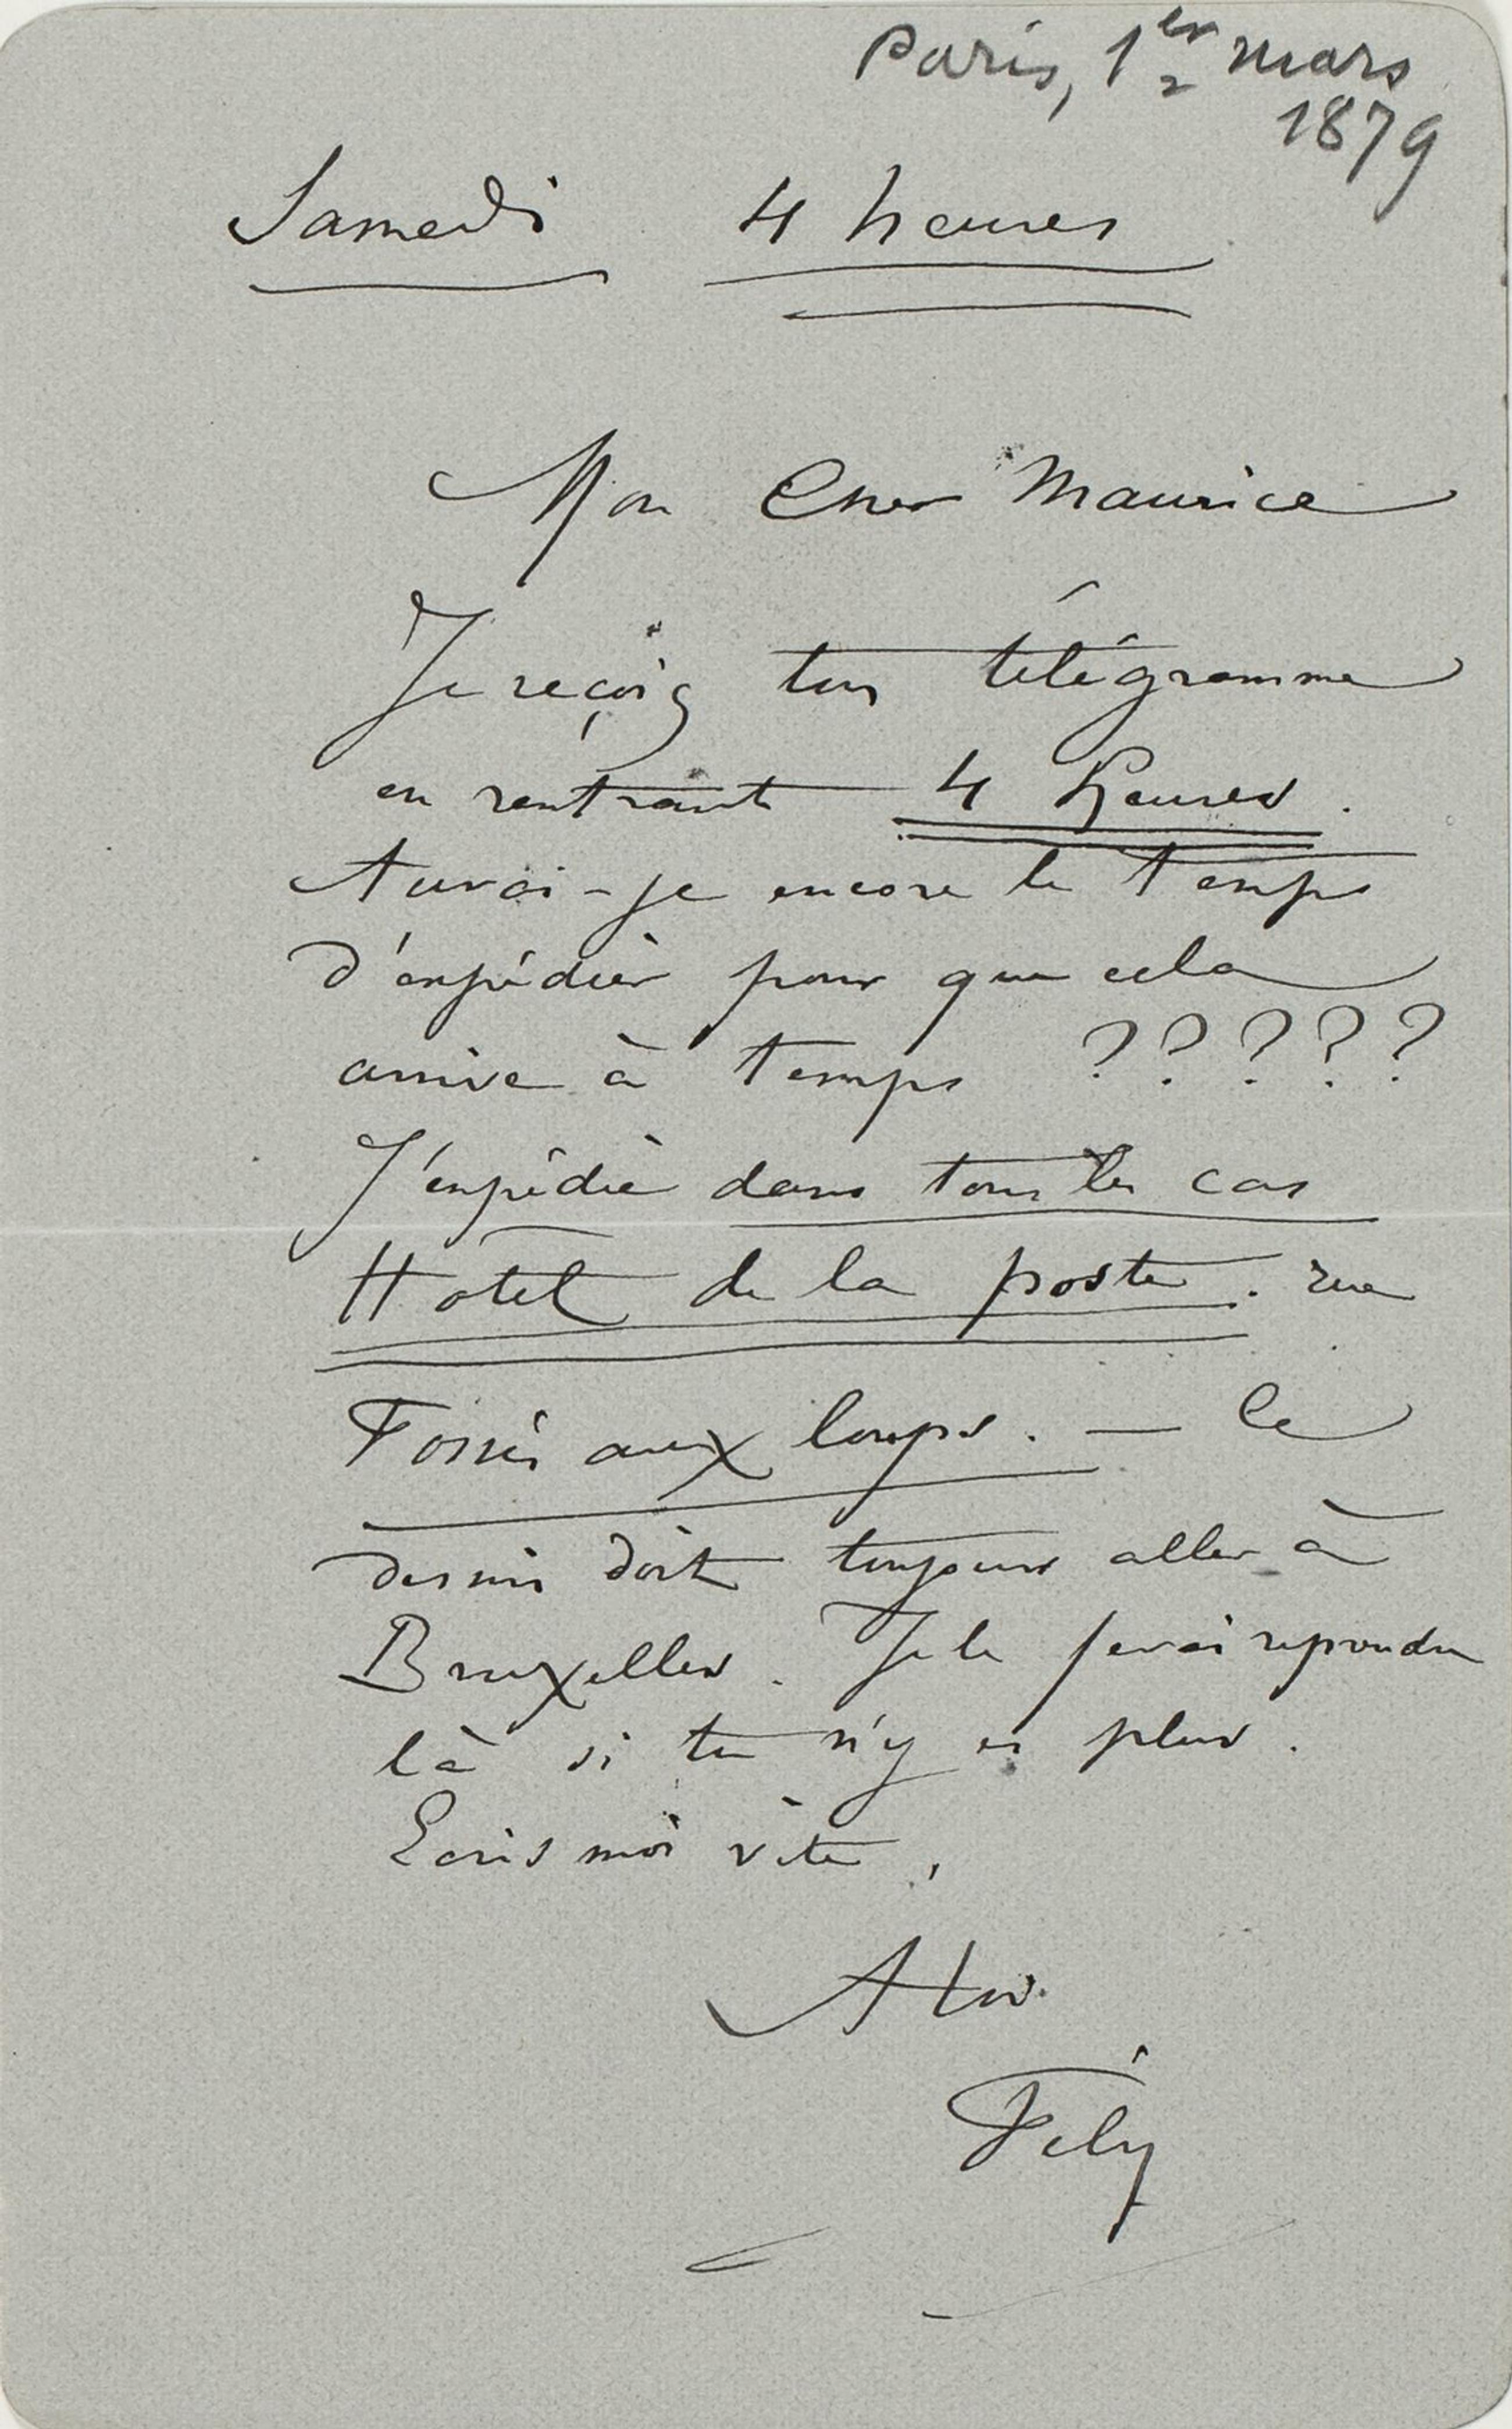 Paris, 1er mars
1879
Samedi 4 heures
Mon Cher Maurice
Je reçois ton télégramme
en rentrant 4 heures.
Aurai-je encore le temps
d'expédier pour que cela
arrive à temps ?????
J'expédie dans tous les cas
Hotel de la poste. rue
Fossés aux loups. — le
dessin doit toujours aller à
Bruxelles. Je le ferai repondre
là si tu n'y es plus.
Ecris moi vite,
A toi
Fély